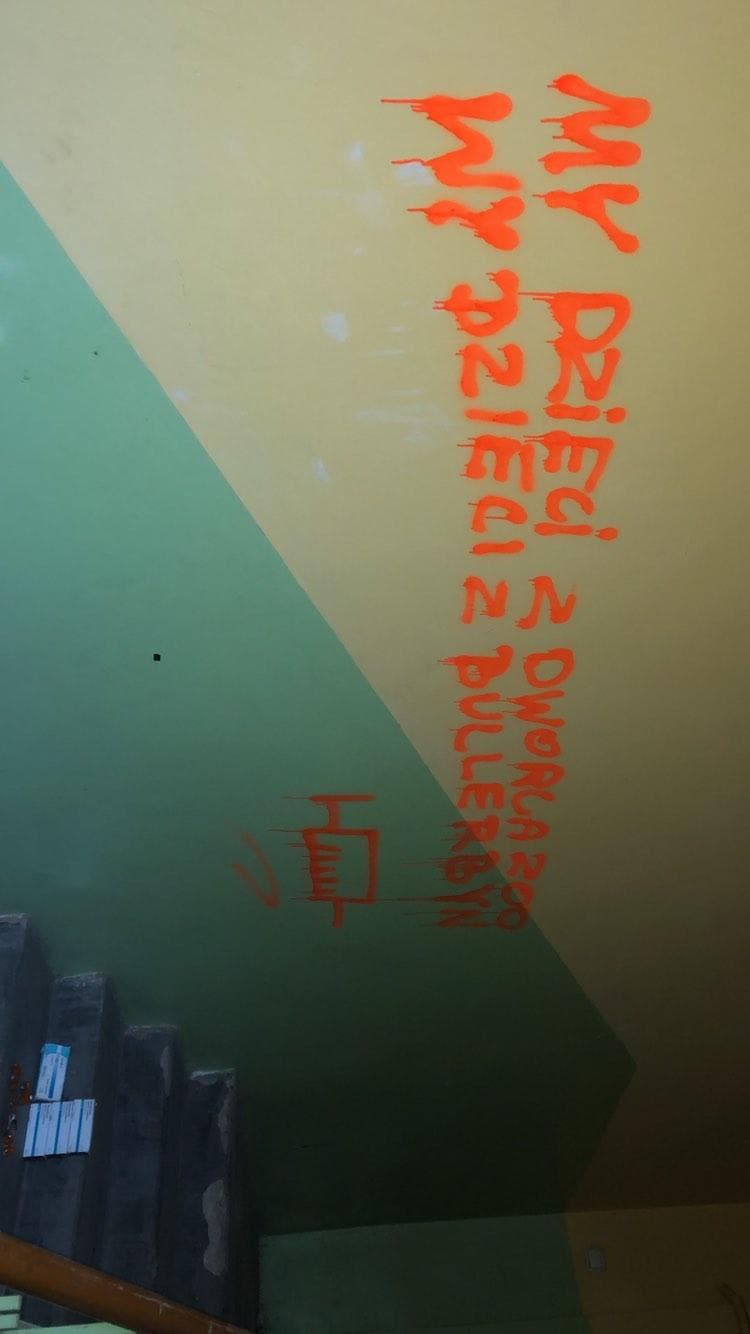 MY DZiECi Z DWORCA ZOO
WY DZIECI Z BULLERBYN